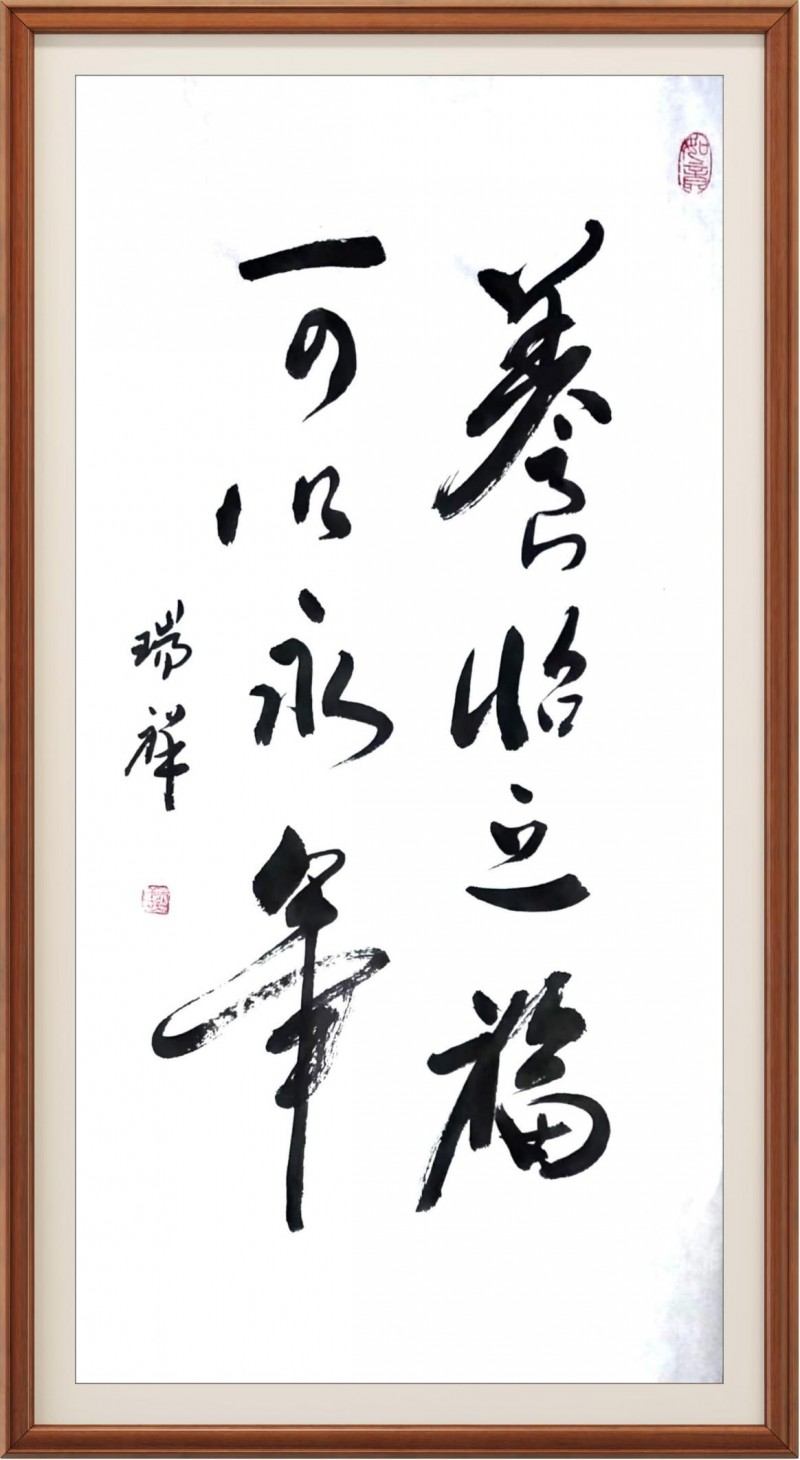 養怡之福
可得永年
瑞祥